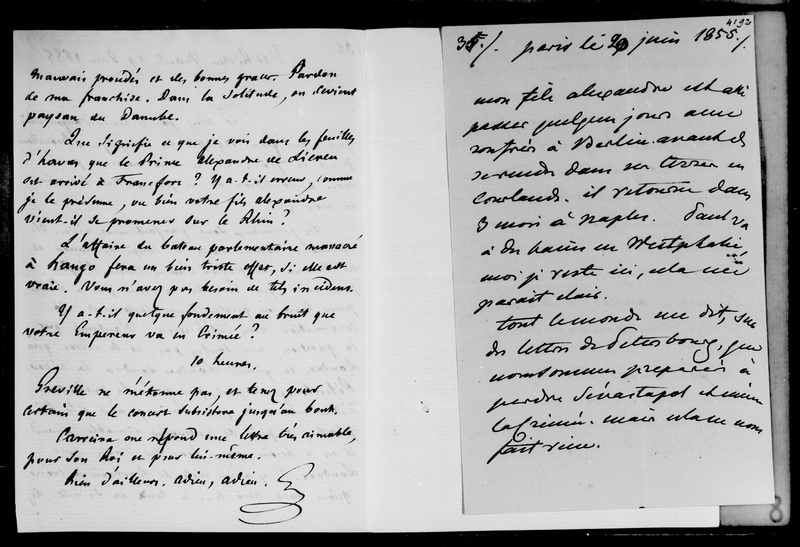 mauvais procédés et des bonnes graces. Pardon
de ma franchise. Dans la solitude, on devient
paysan du Danube.
Que signifie ce que je vois dans les feuilles
d'havas que le Prince Alexandre de Lieven
est arrivé à Francfort ? Y a-t-il erreur, comme
je le présume, ou bien votre fils Alexandre
vient-il se promener sur le Rhin ?
L'affaire du bateau parlementaire massacré
à hango fera un bien triste effet, si elle est
vraie. Vous n'avez pas besoin de tels incidens.
Y a-t-il quelque fondement au bruit que
votre Empereur va en Crimée ?
10 heures.
Greville ne m'étonne pas, et tenez pour
certain que le concert subsistera jusqu'au bout.
Carreira me répond une lettre très aimable,
pour son Roi et pour lui-même.
Rien d'ailleurs. adieu, adieu.
4192
35./. paris le 20 juin 1855./.
mon fils alexandre est allé
passer quelques jours avec
à Berlin avant de
se rendre dans ses terres en
Courlande. il retourne dans
3 mois à Naples. Paul va
à des bains en Westphalie
moi je reste ici, cela me
parait clair.
tout le monde me dit, sur
des lettres de Petersbourg, que
nous sommes préparés à
perdre Sévastopol et même
la Crimée. mais cela ne nous
fait rien.
8